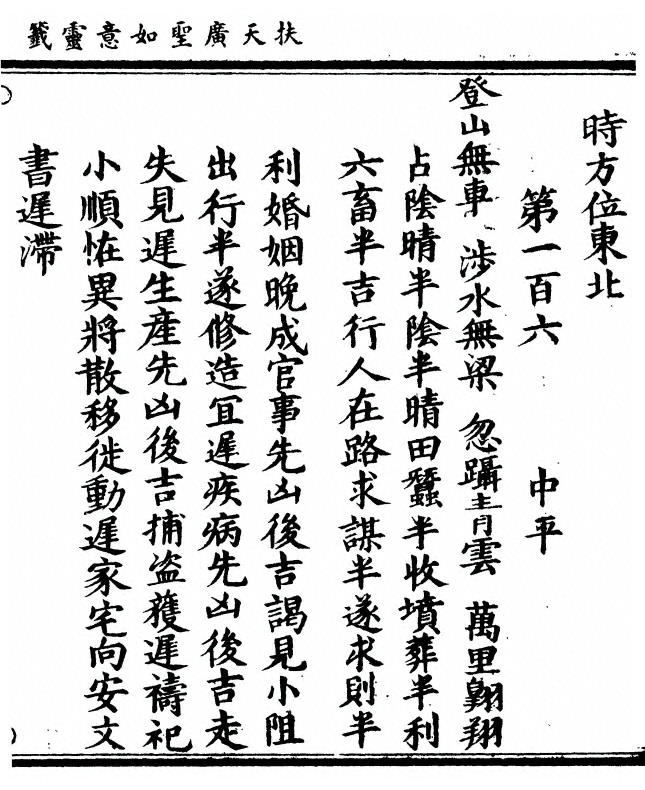 扶天廣聖如意靈籤
時方位東北
第一百六 中平
登山無車 涉水無梁 忽躡青雲 萬里翺翔
占陰晴半陰半晴田蠶半收墳葬半利
六畜半吉行人在路求謀半遂求則半
利婚姻晚成官事先凶後吉謁見小阻
出行半遂修造冝遲疾病先凶後吉走
失見遲生產先凶後吉捕盗獲遲禱祀
小順恠異將散移徙動遲家宅向安文
書遲滯